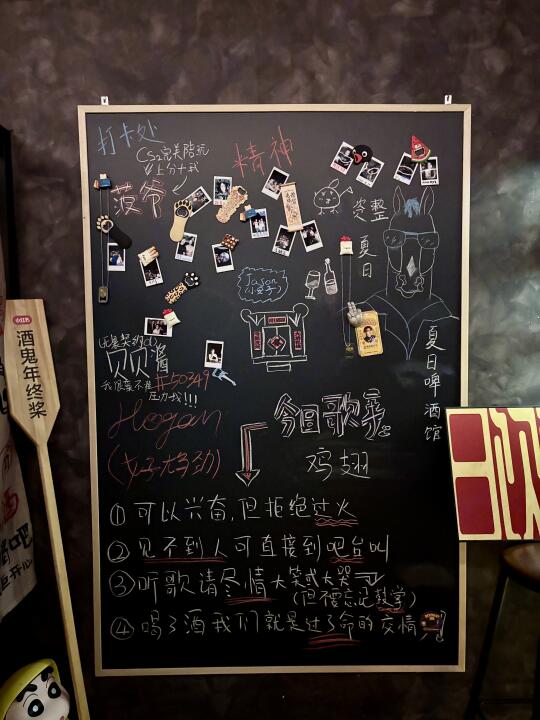 打卡处
CS2完美陪玩
上分十我
菠爷
精神
完整
夏日
夏日啤酒馆
Jason
贝贝酱
#50349
压力我!!!
Hogan
今日歌亲
鸡翅
①可以兴奋,但拒绝过火
②见不到人可直接到吧台叫
③听歌请尽情大笑或大哭
(但不要忘记鼓掌)
④喝了酒我们就是过了命的交情
小红书
酒鬼年终桨
酒
酒吧